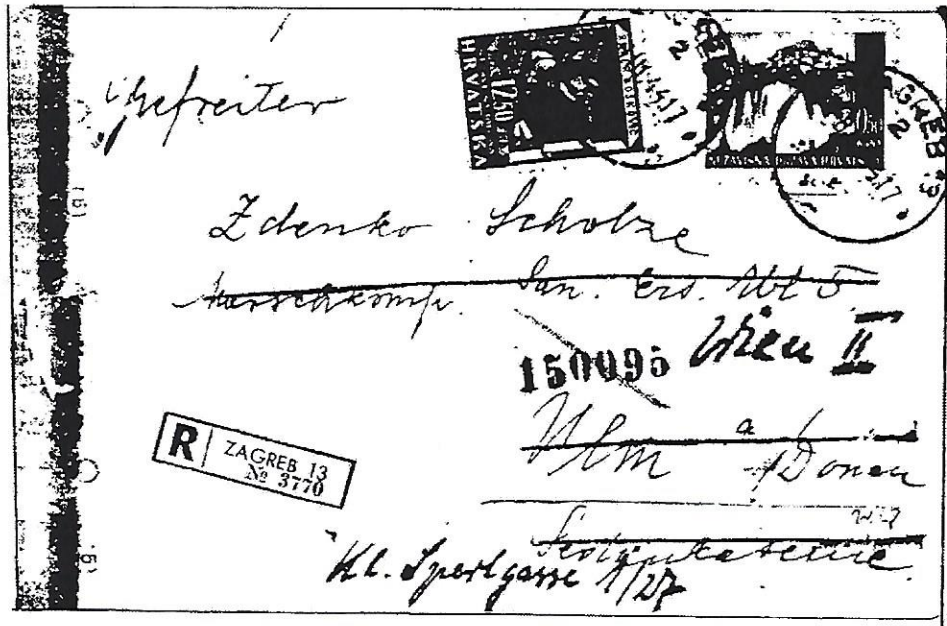 HRVATSKA
12.50
ZAGREB
2
NEZAVISNA DRŽAVA HRVATSKA
Gefreiter
Zdenko Scholze
Marschkomp. San. Ers. Abt. 5
150095 Wien II
Ulm a/Donau
R ZAGREB 13
№ 3770
Kl. Sperlgasse 1/27